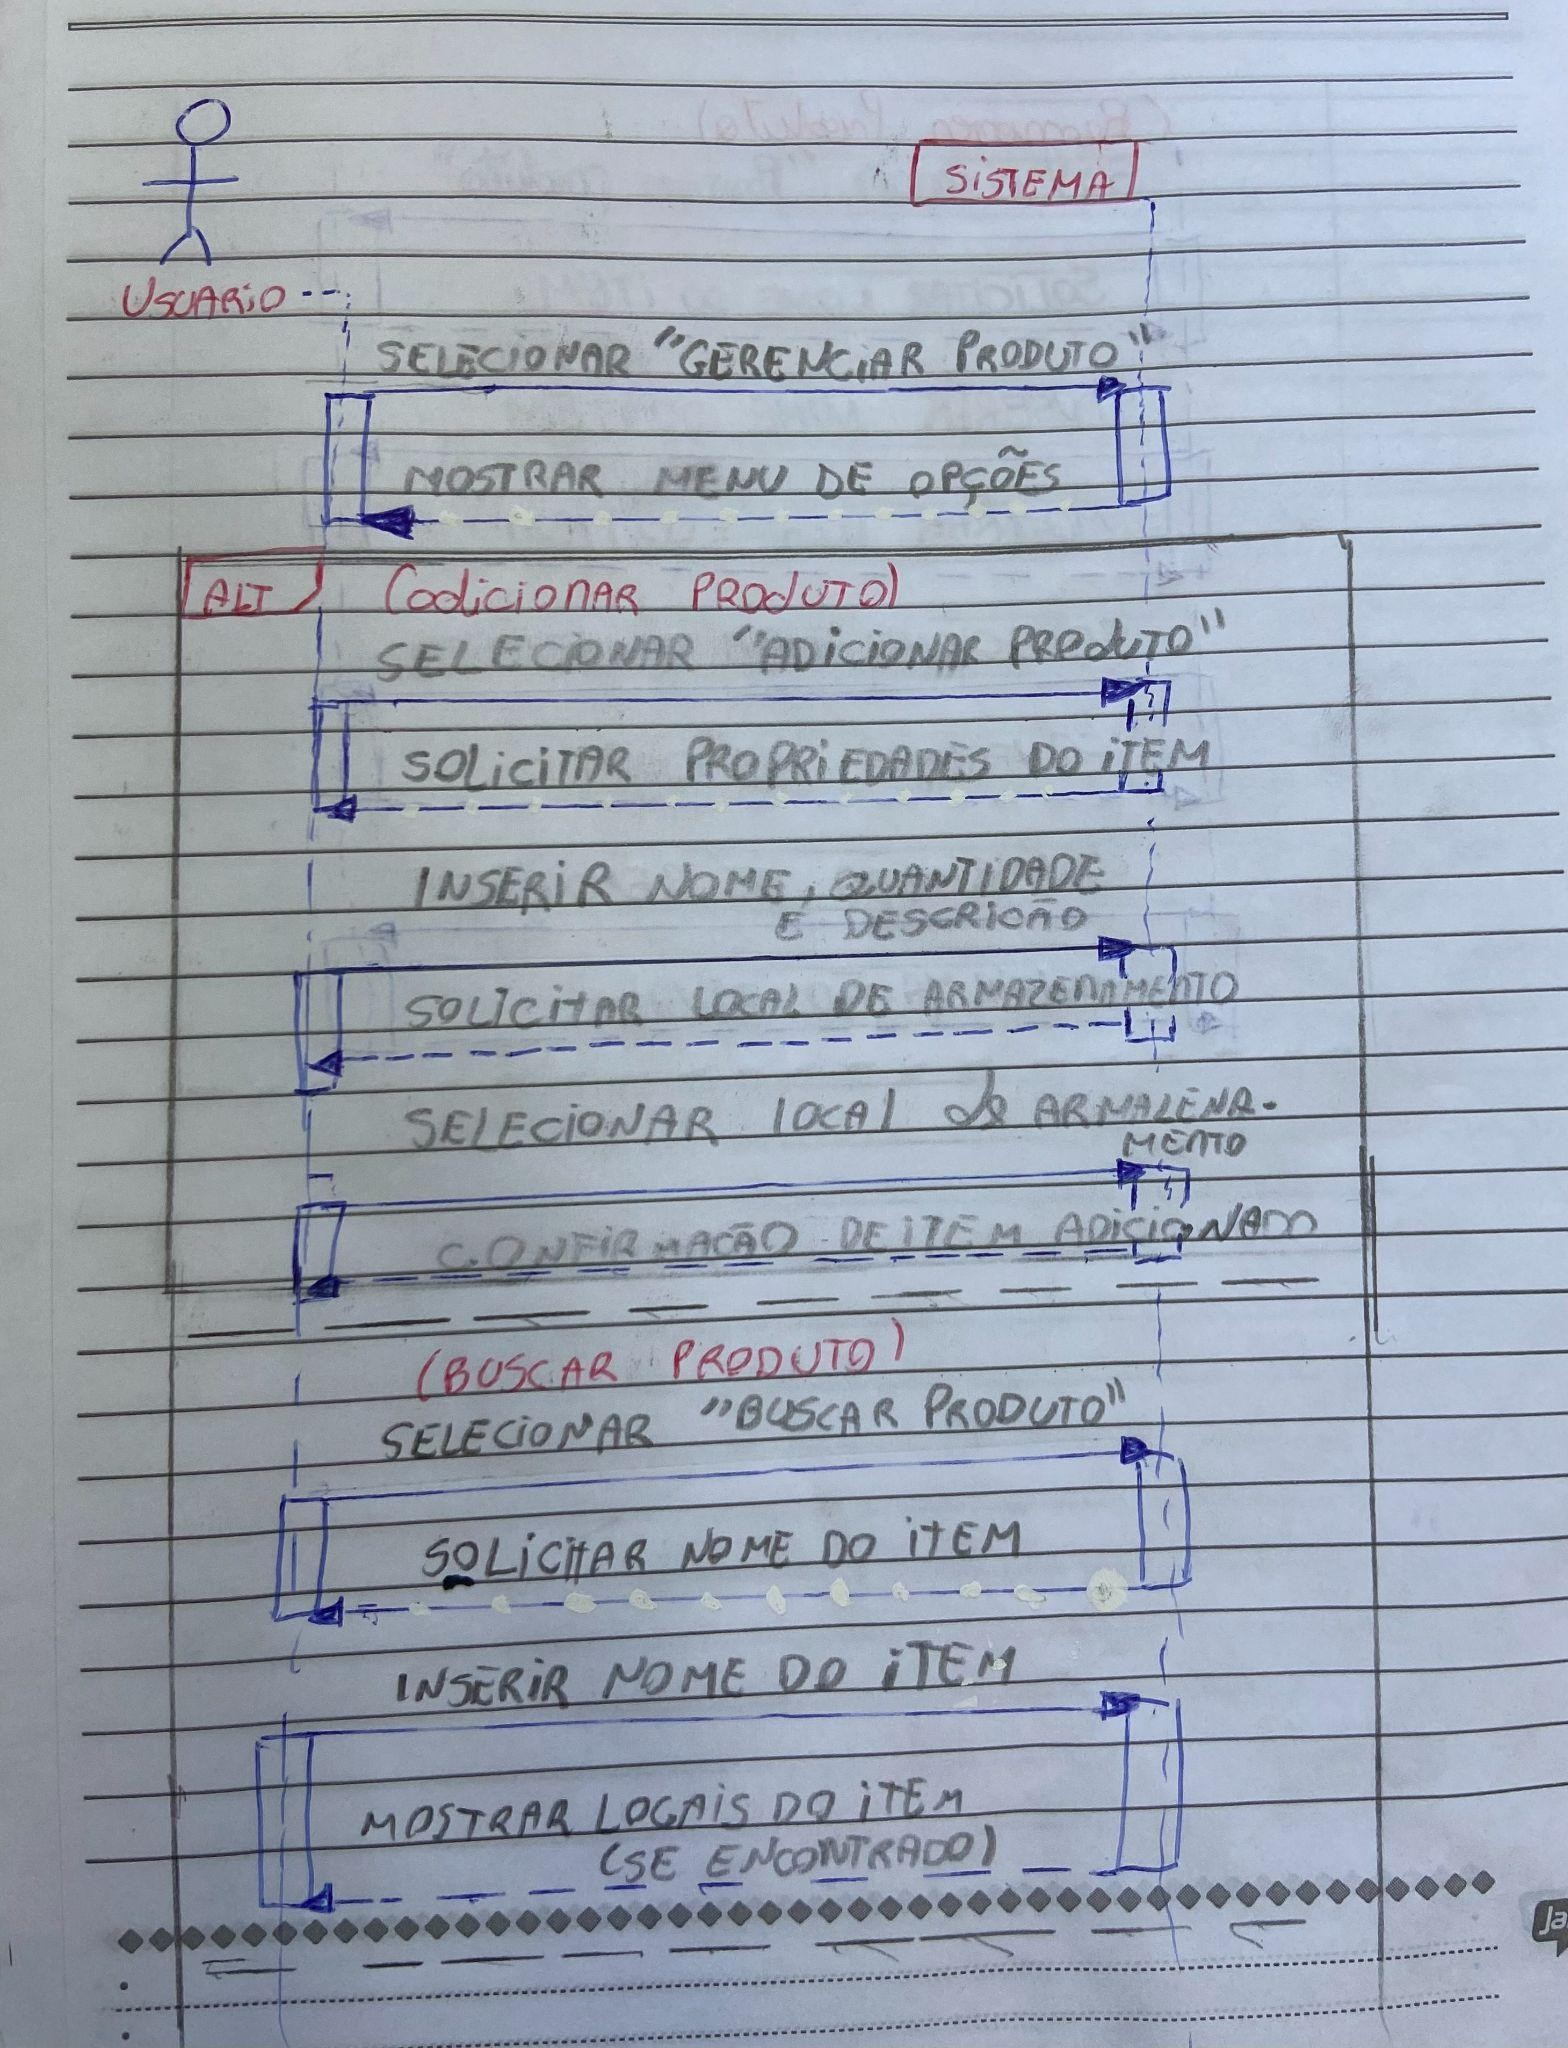 SISTEMA
USUARIO
SELECIONAR "GERENCIAR PRODUTO"
MOSTRAR MENU DE OPÇÕES
ALT (adicionAR PRODUTO)
SELECIONAR "ADICIONAR PRODUTO"
SOLICITAR PROPRIEDADES DO ITEM
INSERIR NOME, QUANTIDADE
E DESCRICÃO
SOLICITAR LOCAL DE ARMAZENAMENTO
SELECIONAR LOCAL de ARMAZENA-
MENTO
CONFIRMACÃO DE ITEM ADICIONADO
(BUSCAR PRODUTO)
SELECIONAR "BUSCAR PRODUTO"
SOLICITAR NOME DO ITEM
INSERIR NOME DO ITEM
MOSTRAR LOCAIS DO ITEM
(SE ENCONTRADO)